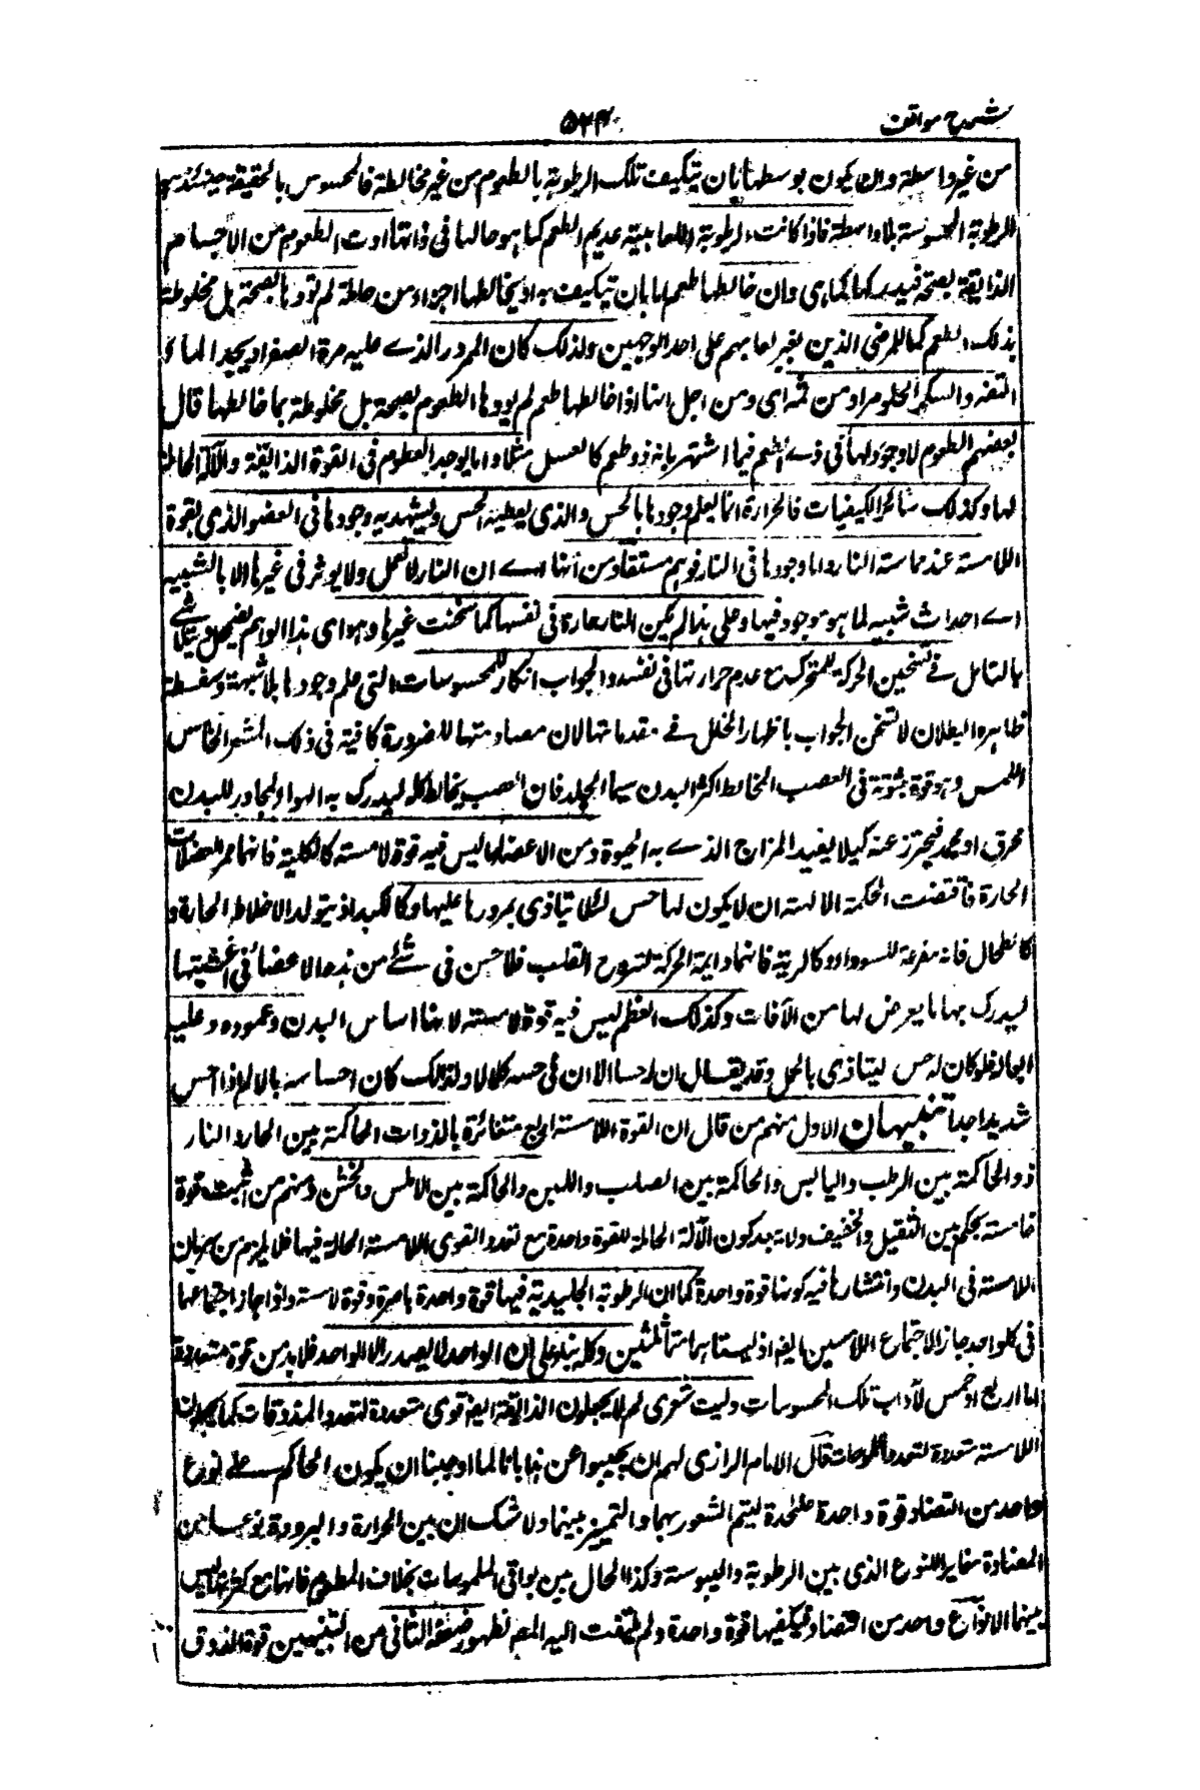 شرح مواقف
۵۲۴
من غير واسطة واما يكون بوسطها بان يتكيف تلك الرطوبة بالطعوم من غير مخالطة فالمحسوس بالحقيقة حينئذ هو
الرطوبة المحسوسة بلا واسطة فاذا كانت الرطوبة اللعابية عديم الطعم كما هو حالها فى ذاتها ادت الطعوم من الاجسام
الذايقة بصحة فيدركها كما هى وان خالطها طعم اما بان تتكيف به او يخالطها اجزاء من حامله لم تؤدها بصحة بل مخلوطة
بذلك الطعم كما للمرضى الذين تغير لعابهم على احد الوجهين ولذلك كان الممرور الذے عليه مرة الصفراء يجد الماء
التفه والسكر الحلو مرا ومن ثمه اى ومن اجل انها اذا خالطها طعم لم يودها الطعوم بصحة بل مخلوطة بما خالطها قال
بعضهم الطعوم لا وجود لها فى ذے الطعم فيما اشتهر بانه ذو طعم كالعسل مثلا وانما يوجد الطعوم فى القوة الذائقة والآلة الحاملة
لها وكذلك سائر الكيفيات فالحرارة انما يعلم وجودها بالحس والذى يعطيه الحس ويشهد به وجودها فى العضو الذى بقوة
اللامسة عند مماسة النار واما وجودها فى النار فوهم مستفاد من انها اے ان النار لا تعمل ولا يوثر فى غيرها الا بالتشبيه
اے احداث شبيه لما هو موجود فيها وعلى هذا لم يكن النار حارة فى نفسها كما سخنت غيرها وهو اى هذا الوهم يضمحل ويتلاشے
بالتامل فے تسخين الحركة للمتحرك مع عدم حرارتها فى نفسه والجواب انكار للمحسوسات التى علم وجودها بلا شبهة وسفسطة
ظاهرة البطلان لا تستحق الجواب باظهار الخلل فے مقدماتها لان مصادمتها للضرورة كافية فى ذلك المشعر الخامس
اللمس وهو قوة مبثوثة فى العصب المخالط اكثر البدن سيما الجلد فان العصب يخالط كله ليدرك به الهواء المجاور للبدن
محرق او مجمد فيحترز عنه كيلا يفسد المزاج الذے به الحيوة ومن الاعضاء ما ليس فيه قوة لامسة كالكلية فانها ممر الفضلات
الحارة فاقتضت الحكمة الالهية ان لا يكون لها حس لئلا يتاذى بمرورها عليها وكالكبد اذ يتولد الاخلاط الحارة و
كالطحال فانه مفرغة للسوداء وكالرية فانها دايمة الحركة لتروح القلب فلا حس فى شئے من هذه الاعضاء فى اغشيتها
ليدرك بها ما يعرض لها من الآفات وكذلك العظم ليس فيه قوة لامسة لانها اساس البدن وعموده وعليه
اثقاله فلو كان له حس ليتاذى بالحمل وقد يقال ان له حسا الا ان فى حسه كلالا ولذلك كان احساسه بالالم اذا احس
شديدا جدا تنبيهان الاول منهم من قال ان القوة اللامسة اربع متغائرة بالذوات الحاكمة بين الحار والبارد
ذ والحاكمة بين الرطب واليابس والحاكمة بين الصلب واللين والحاكمة بين الاملس والخشن ومنهم من اثبت قوة
خامسة يحكم بين الثقيل والخفيف ولا بد يكون الآلة الحاملة للقوة واحدة مع تعدد القوى اللامسة الحالة فيها فلا يلزم من سريان
اللامسة فى البدن وانتشارها فيه كونها قوة واحدة كما ان الرطوبة الجليدية فيها قوة واحدة باصرة وقوة لامسة واذا جاز اجتماعهما
فى كل واحد جاز الاجتماع اللامستين ايضا اذ ليستا بمتماثلتين وكله بناء على ان الواحد لا يصدر الا الواحد فلا بد من قوة متعددة
اما اربع او خمس لآداب تلك المحسوسات وليت شعرى لم لا يجعلون الذايقة ايضا قوى متعددة لتعدد المذوقات كما يجعلون
اللامسة متعددة لتعدد الملموسات قال الامام الرازى لهم ان يجيبوا عن هذا بانا لما اوجبنا ان يكون الحاكم علے نوع
واحد من التضاد قوة واحدة متحدة ليتم الشعور بهما والتمييز بينهما ولا شك ان بين الحرارة والبرودة نوعا من
المضادة مغاير للنوع الذى بين الرطوبة واليبوسة وكذا الحال بين بواقى الملموسات بخلاف المطعوم فانها مع كثرتها ليس
بينهما الا نوع واحد من التضاد فيكفيها قوة واحدة ولم يلتفت اليه المصنف لظهور ضعفه الثانى من التنبيهين قوة الذوق